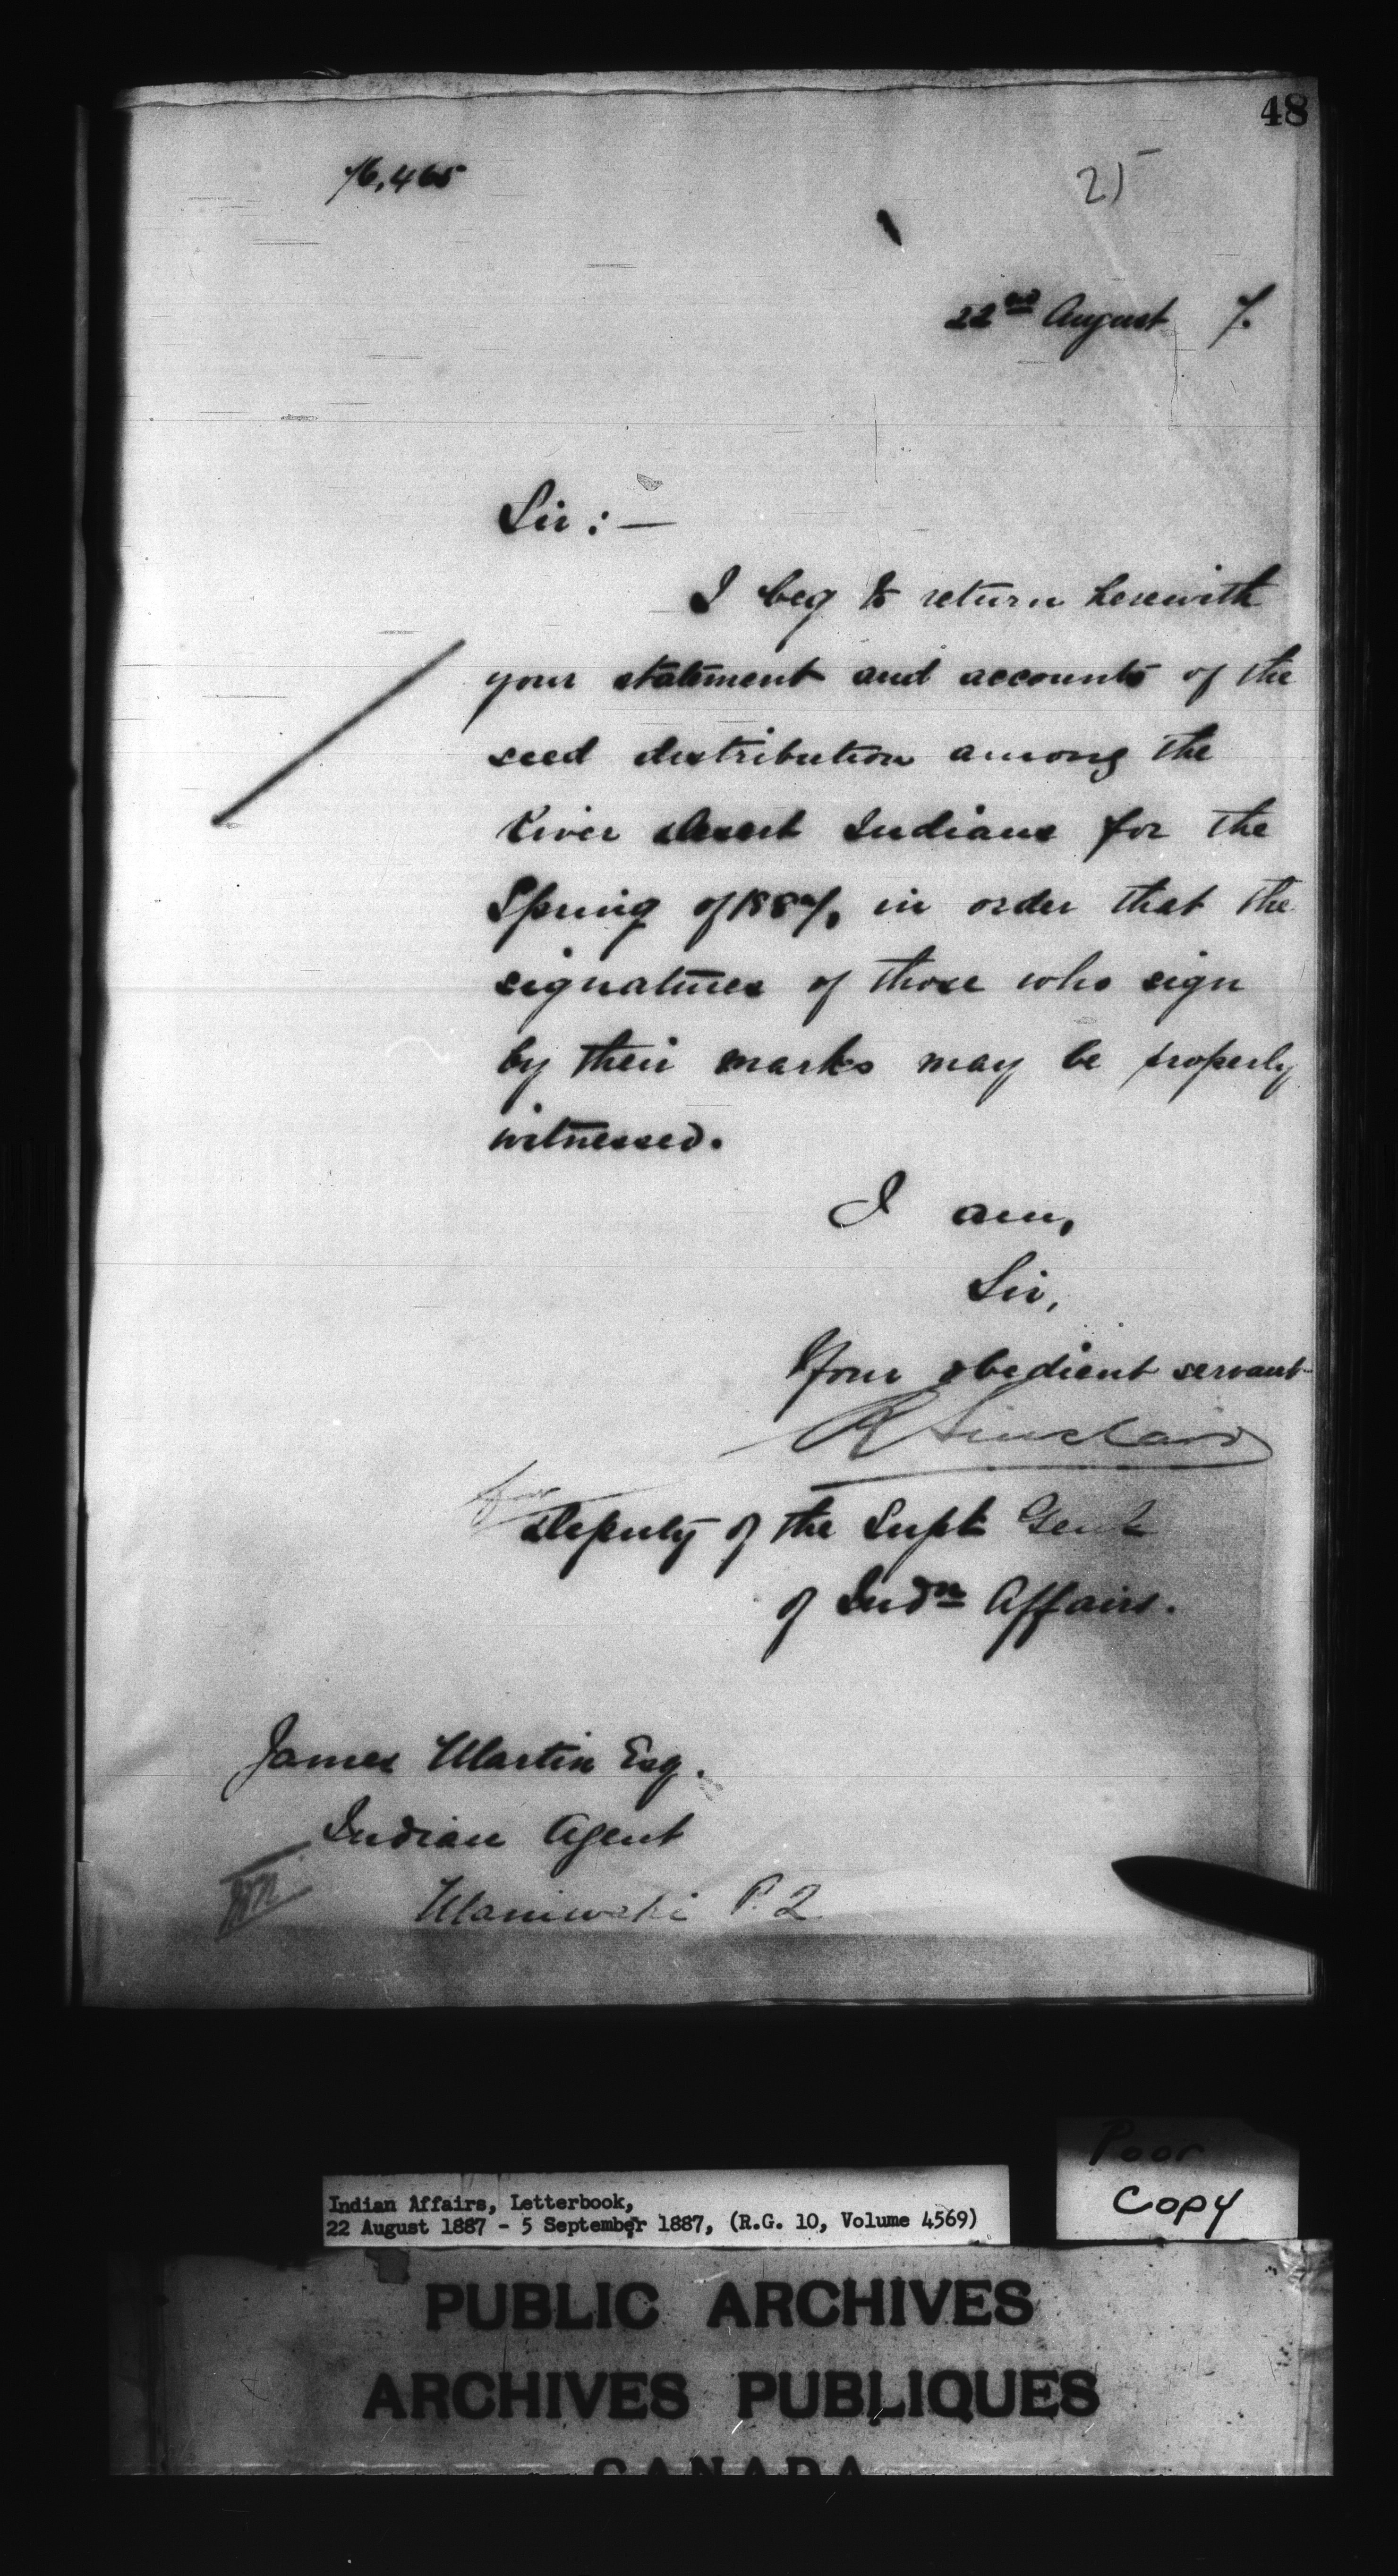 48
76,465
25
22nd August 7.
Sir : —
I beg to return herewith
your statement and accounts of the
seed distribution among the
River Desert Indians for the
Spring of 1887, in order that the
signatures of those who sign
by their marks may be properly
witnessed.
I am,
Sir,
Your obedient servant
R Sinclair
for
Deputy of the Supt Genl
of Indn Affairs.
James Martin Esq.
Indian Agent
Maniwaki P.Q
Poor
Copy
Indian Affairs, Letterbook,
22 August 1887 - 5 September 1887, (R.G. 10, Volume 4569)
PUBLIC ARCHIVES
ARCHIVES PUBLIQUES
CANADA